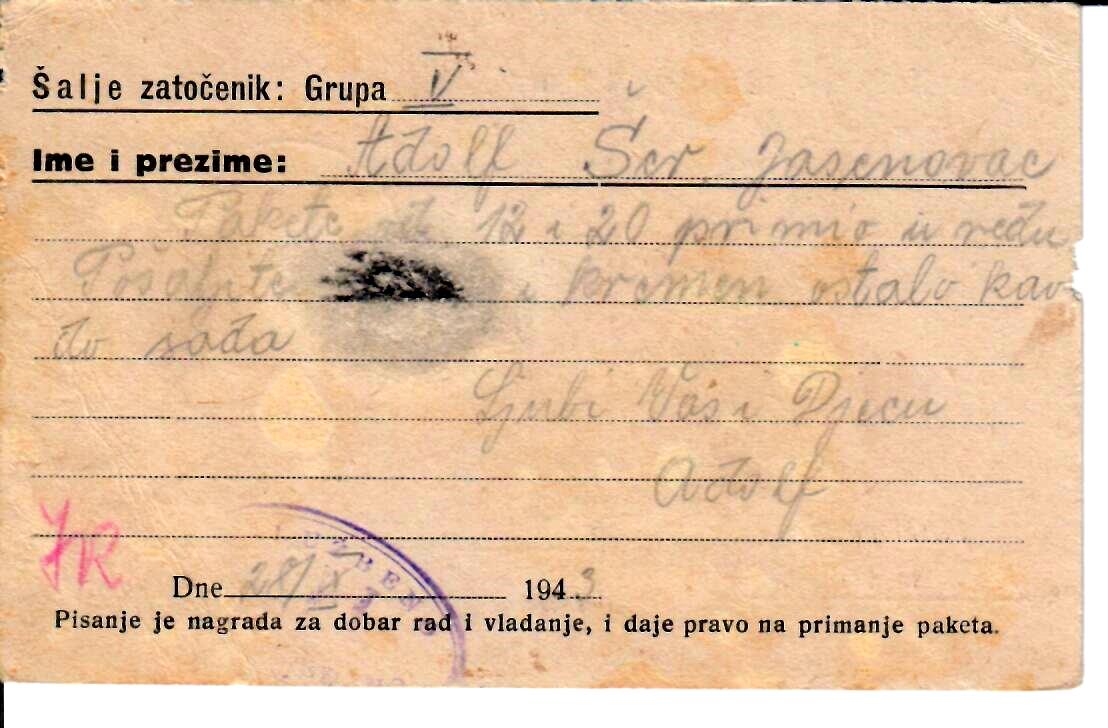 Šalje zatočenik: Grupa V
Ime i prezime: Adolf Jasenovac
Pakete od 12 i 20 primio u redu
Pošaljite i kremen ostalo kao
do sada
Ljubi Vas i Djecu
Adolf
Dne 28/ 1943
Pisanje je nagrada za dobar rad i vladanje, i daje pravo na primanje paketa.